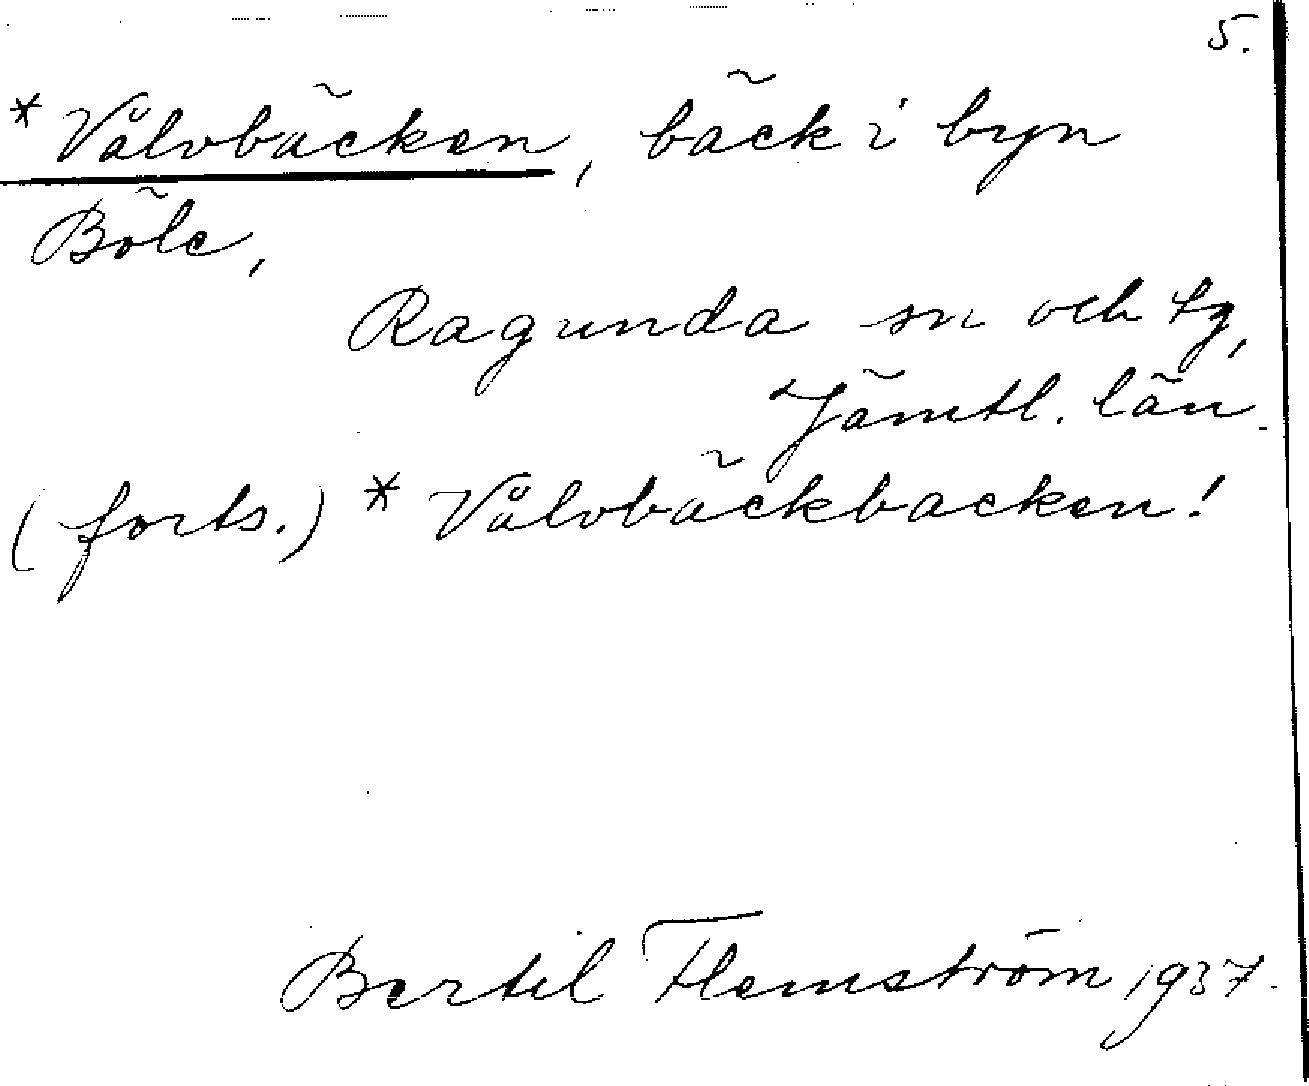 5.
* Vålvbäcken, bäck i byn
Böle,
Ragunda sn och tg,
Jämtl. län.
(forts.) * Vålvbäckbacken!
Bertil Flemström 1937.